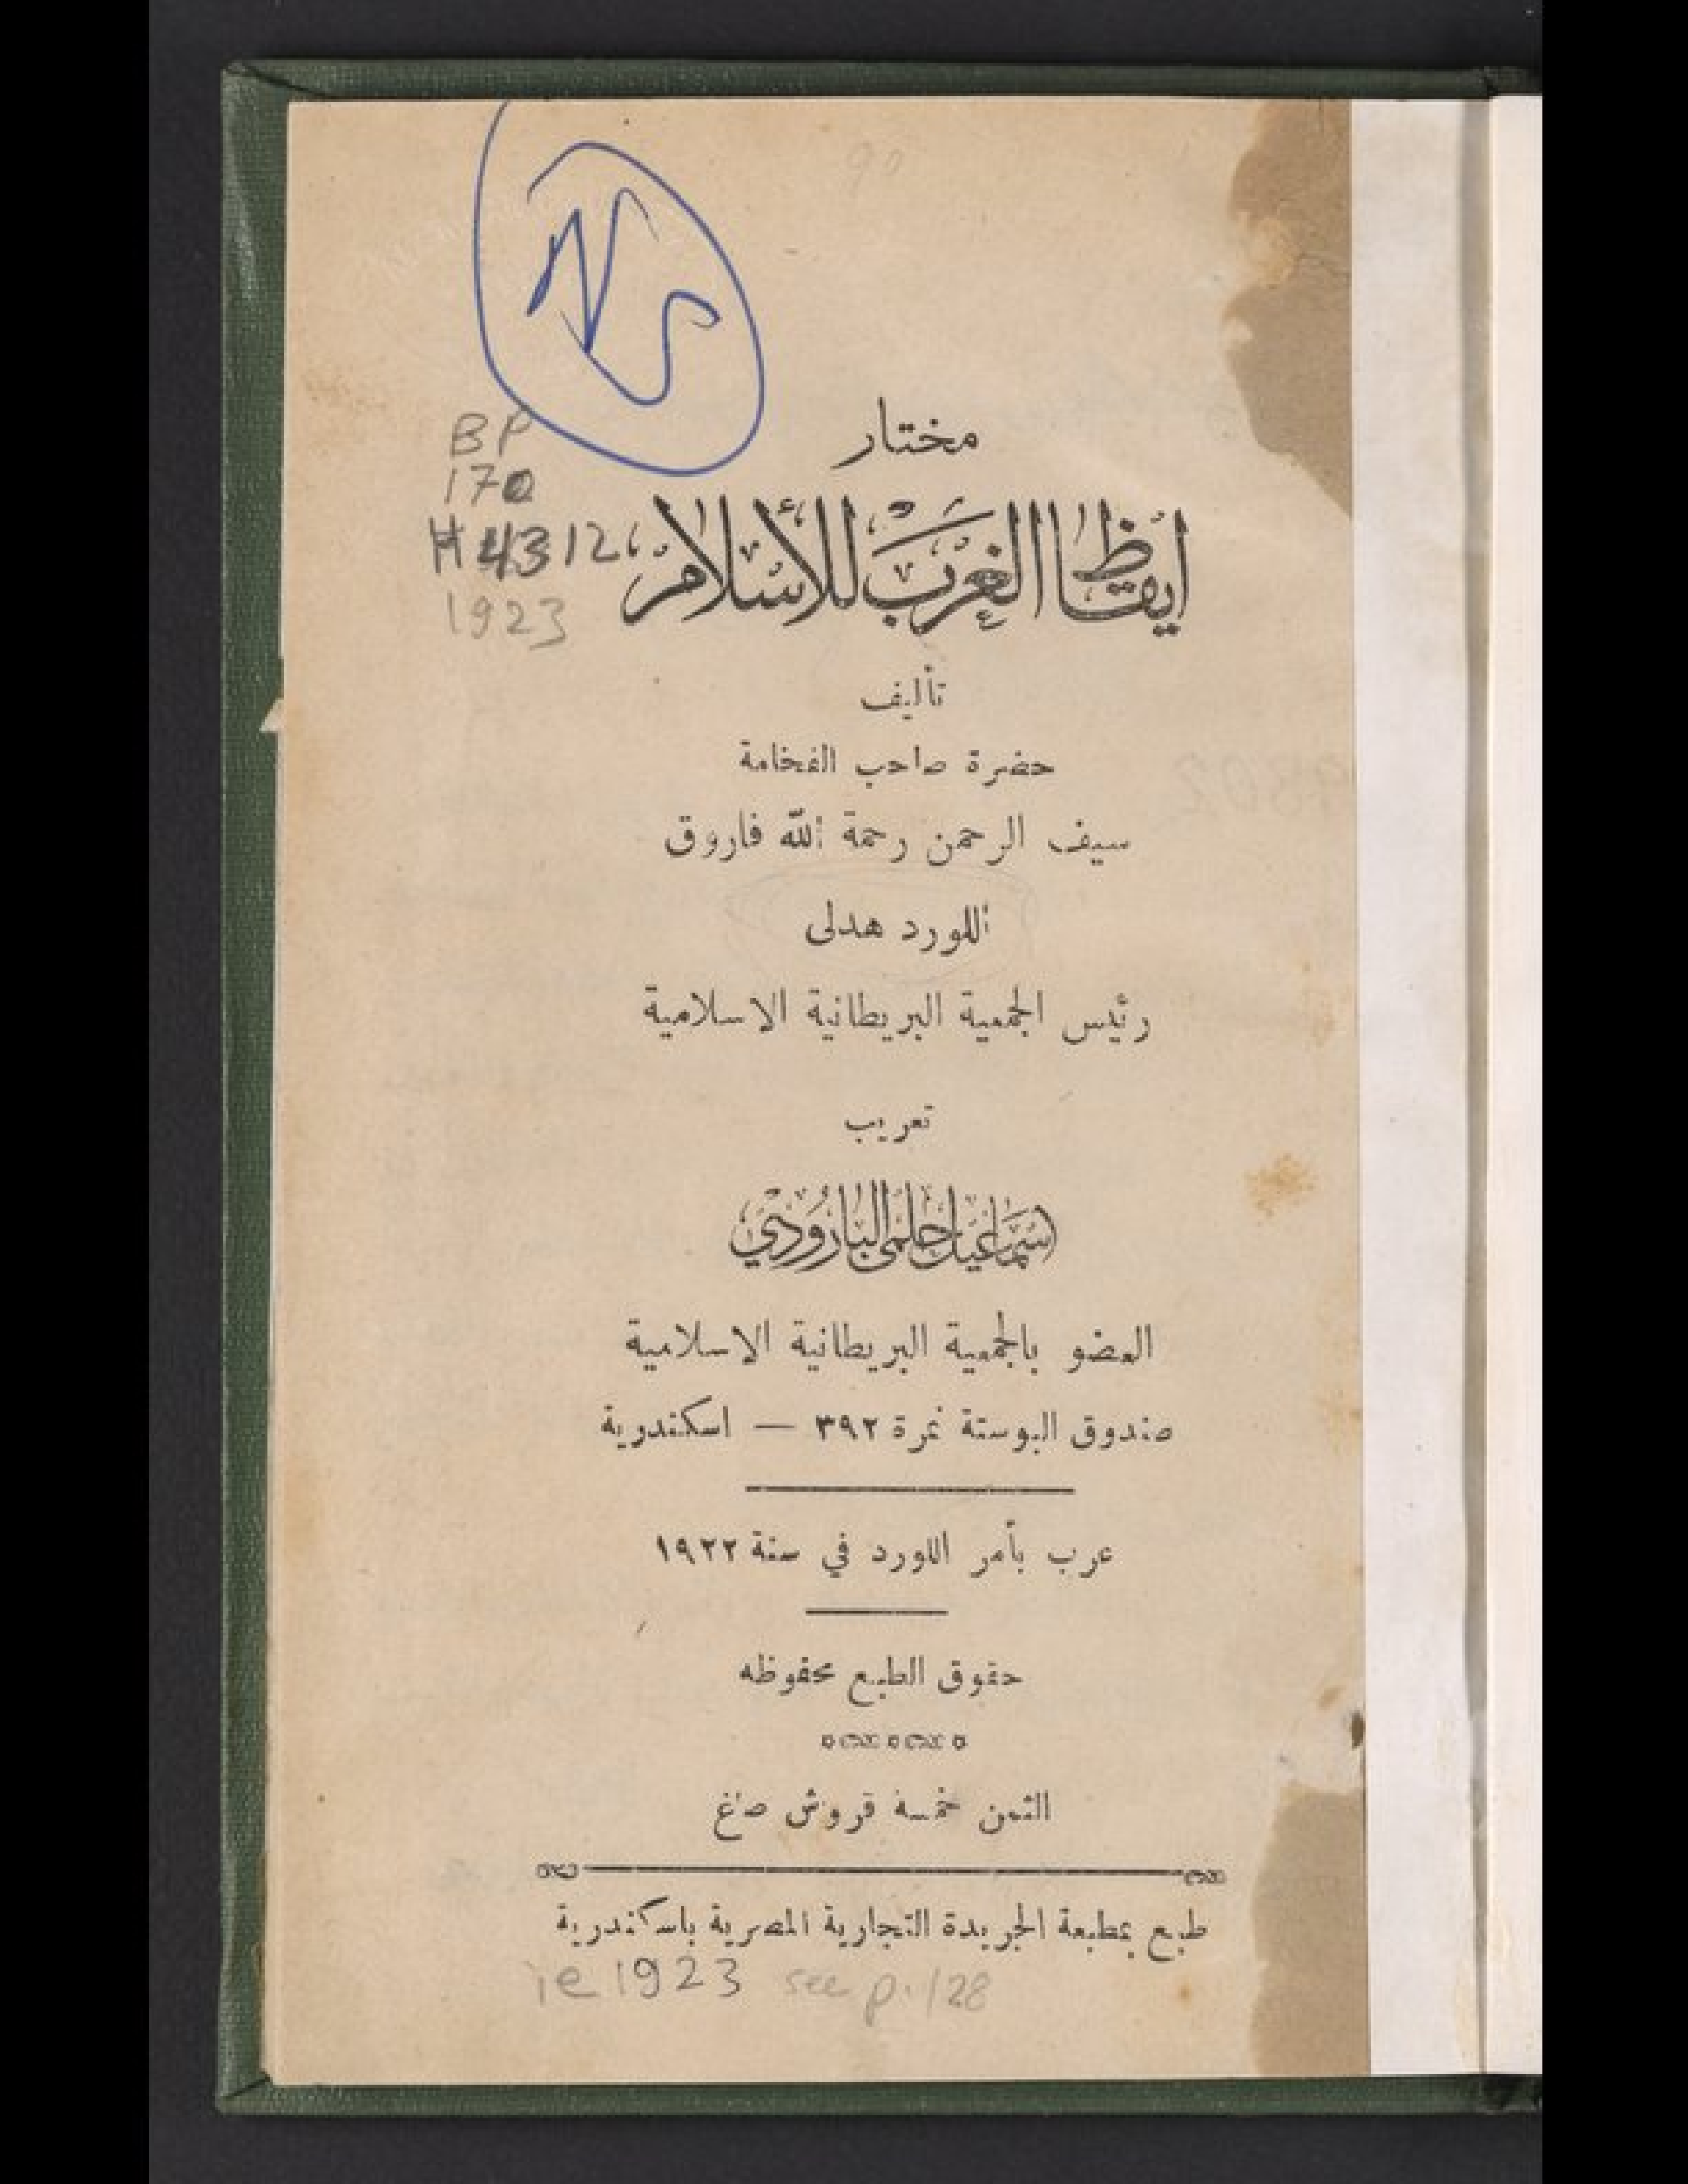 مختار
BP
170
H4312
1923
ايقاظ الغرب للأسلام
تأليف
حضرة صاحب الفخامة
سيف الرحمن رحمة الله فاروق
اللورد هدلى
رئيس الجمعية البريطانية الاسلامية
تعريب
اسماعيل حلمى البارودي
العضو بالجمعية البريطانية الاسلامية
صندوق البوستة نمرة ٣٩٢ — اسكندرية
عرب بأمر اللورد في سنة ١٩٢٢
حقوق الطبع محفوظه
الثمن خمسة قروش صاغ
طبع بمطبعة الجريدة التجارية المصرية باسكندرية
ie 1923 see p. 128